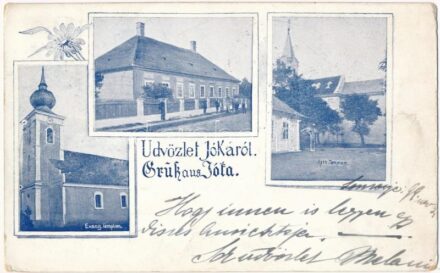 Üdvözlet Jókáról.
Gruß aus Jóka.
Evang. templom.
Kath. Templom
Hogy innen is legyen egy
díszes
Sz. üdvözlet Melanie